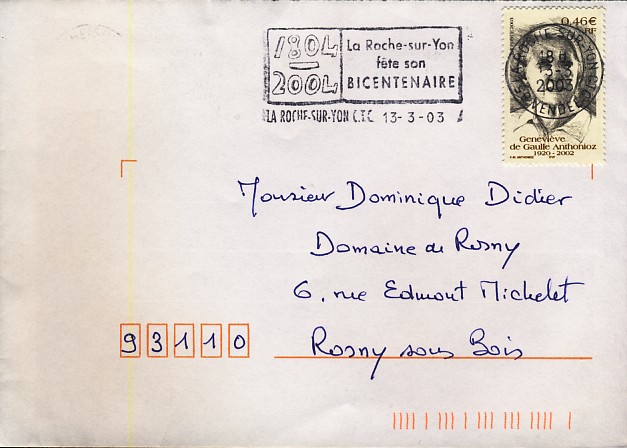 1804
2004
La Roche-sur-Yon
fête son
BICENTENAIRE
LA ROCHE-SUR-YON C.T.C. 13-3-03
0,46€
RF
2003
Geneviève
de Gaulle Anthonioz
1920 - 2002
Monsieur Dominique Didier
Domaine de Rosny
6, rue Edmont Michelet
93110 Rosny sous Bois